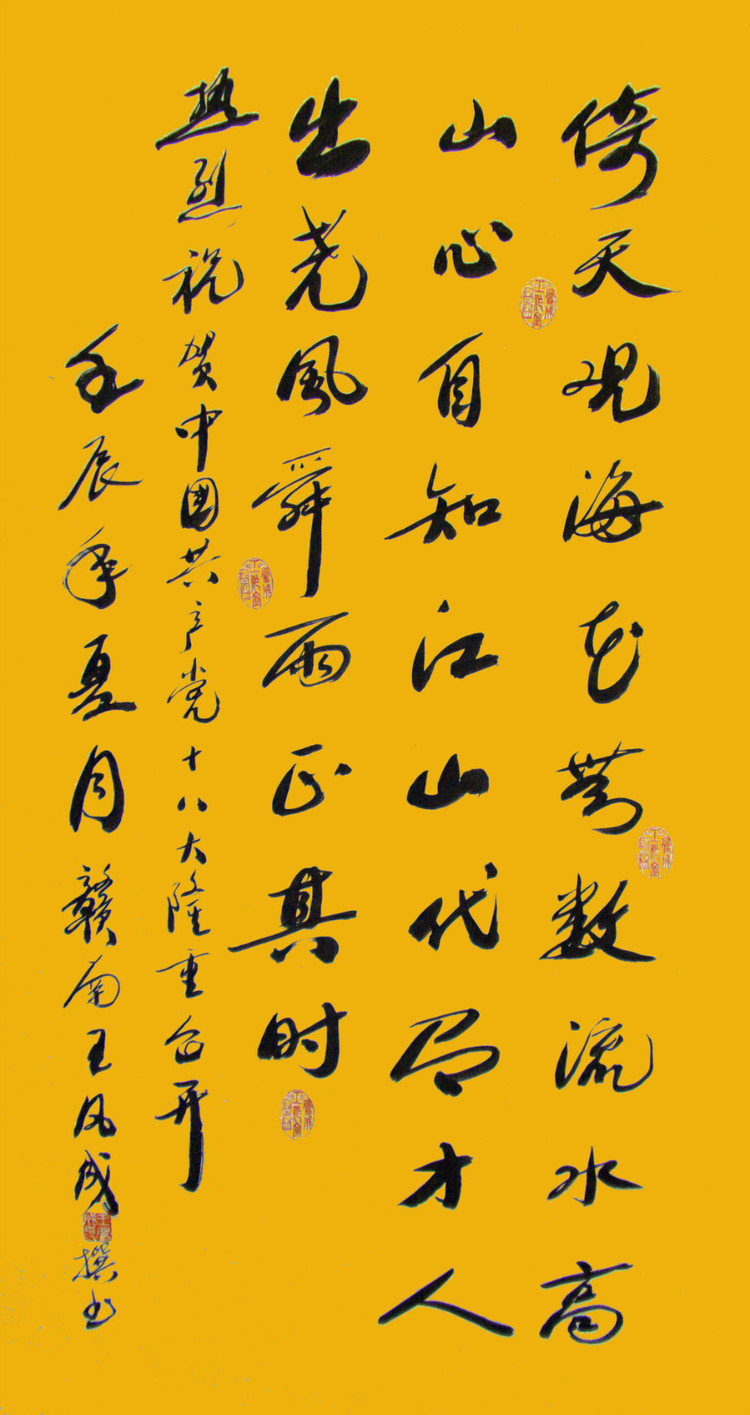 倚天观海花無数流水高
山心自知江山代有才人
出尧風舜雨正其时
热烈祝贺中國共产党十八大隆重召开
壬辰年夏月赣南王凤成撰书